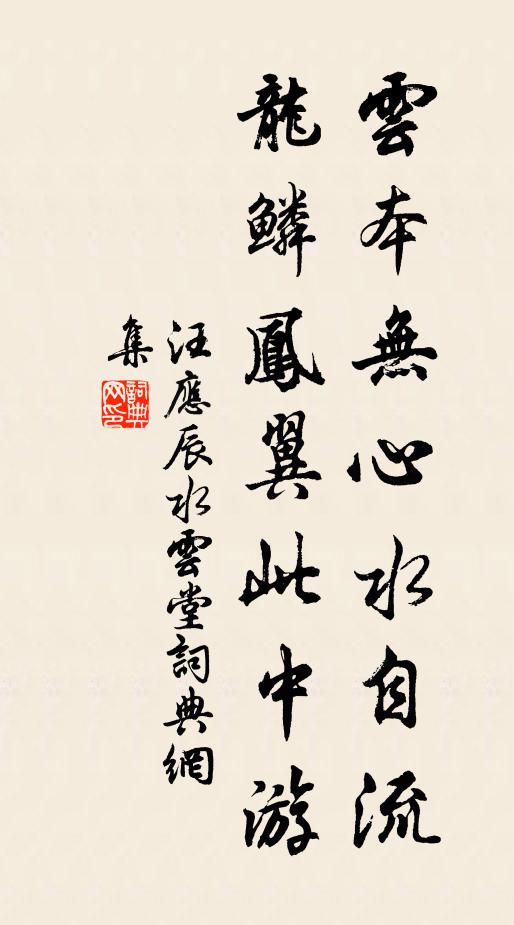 雲本無心水自流
龍鱗鳳翼此中游
汪應辰水雲堂詞典網
集
詞典網印